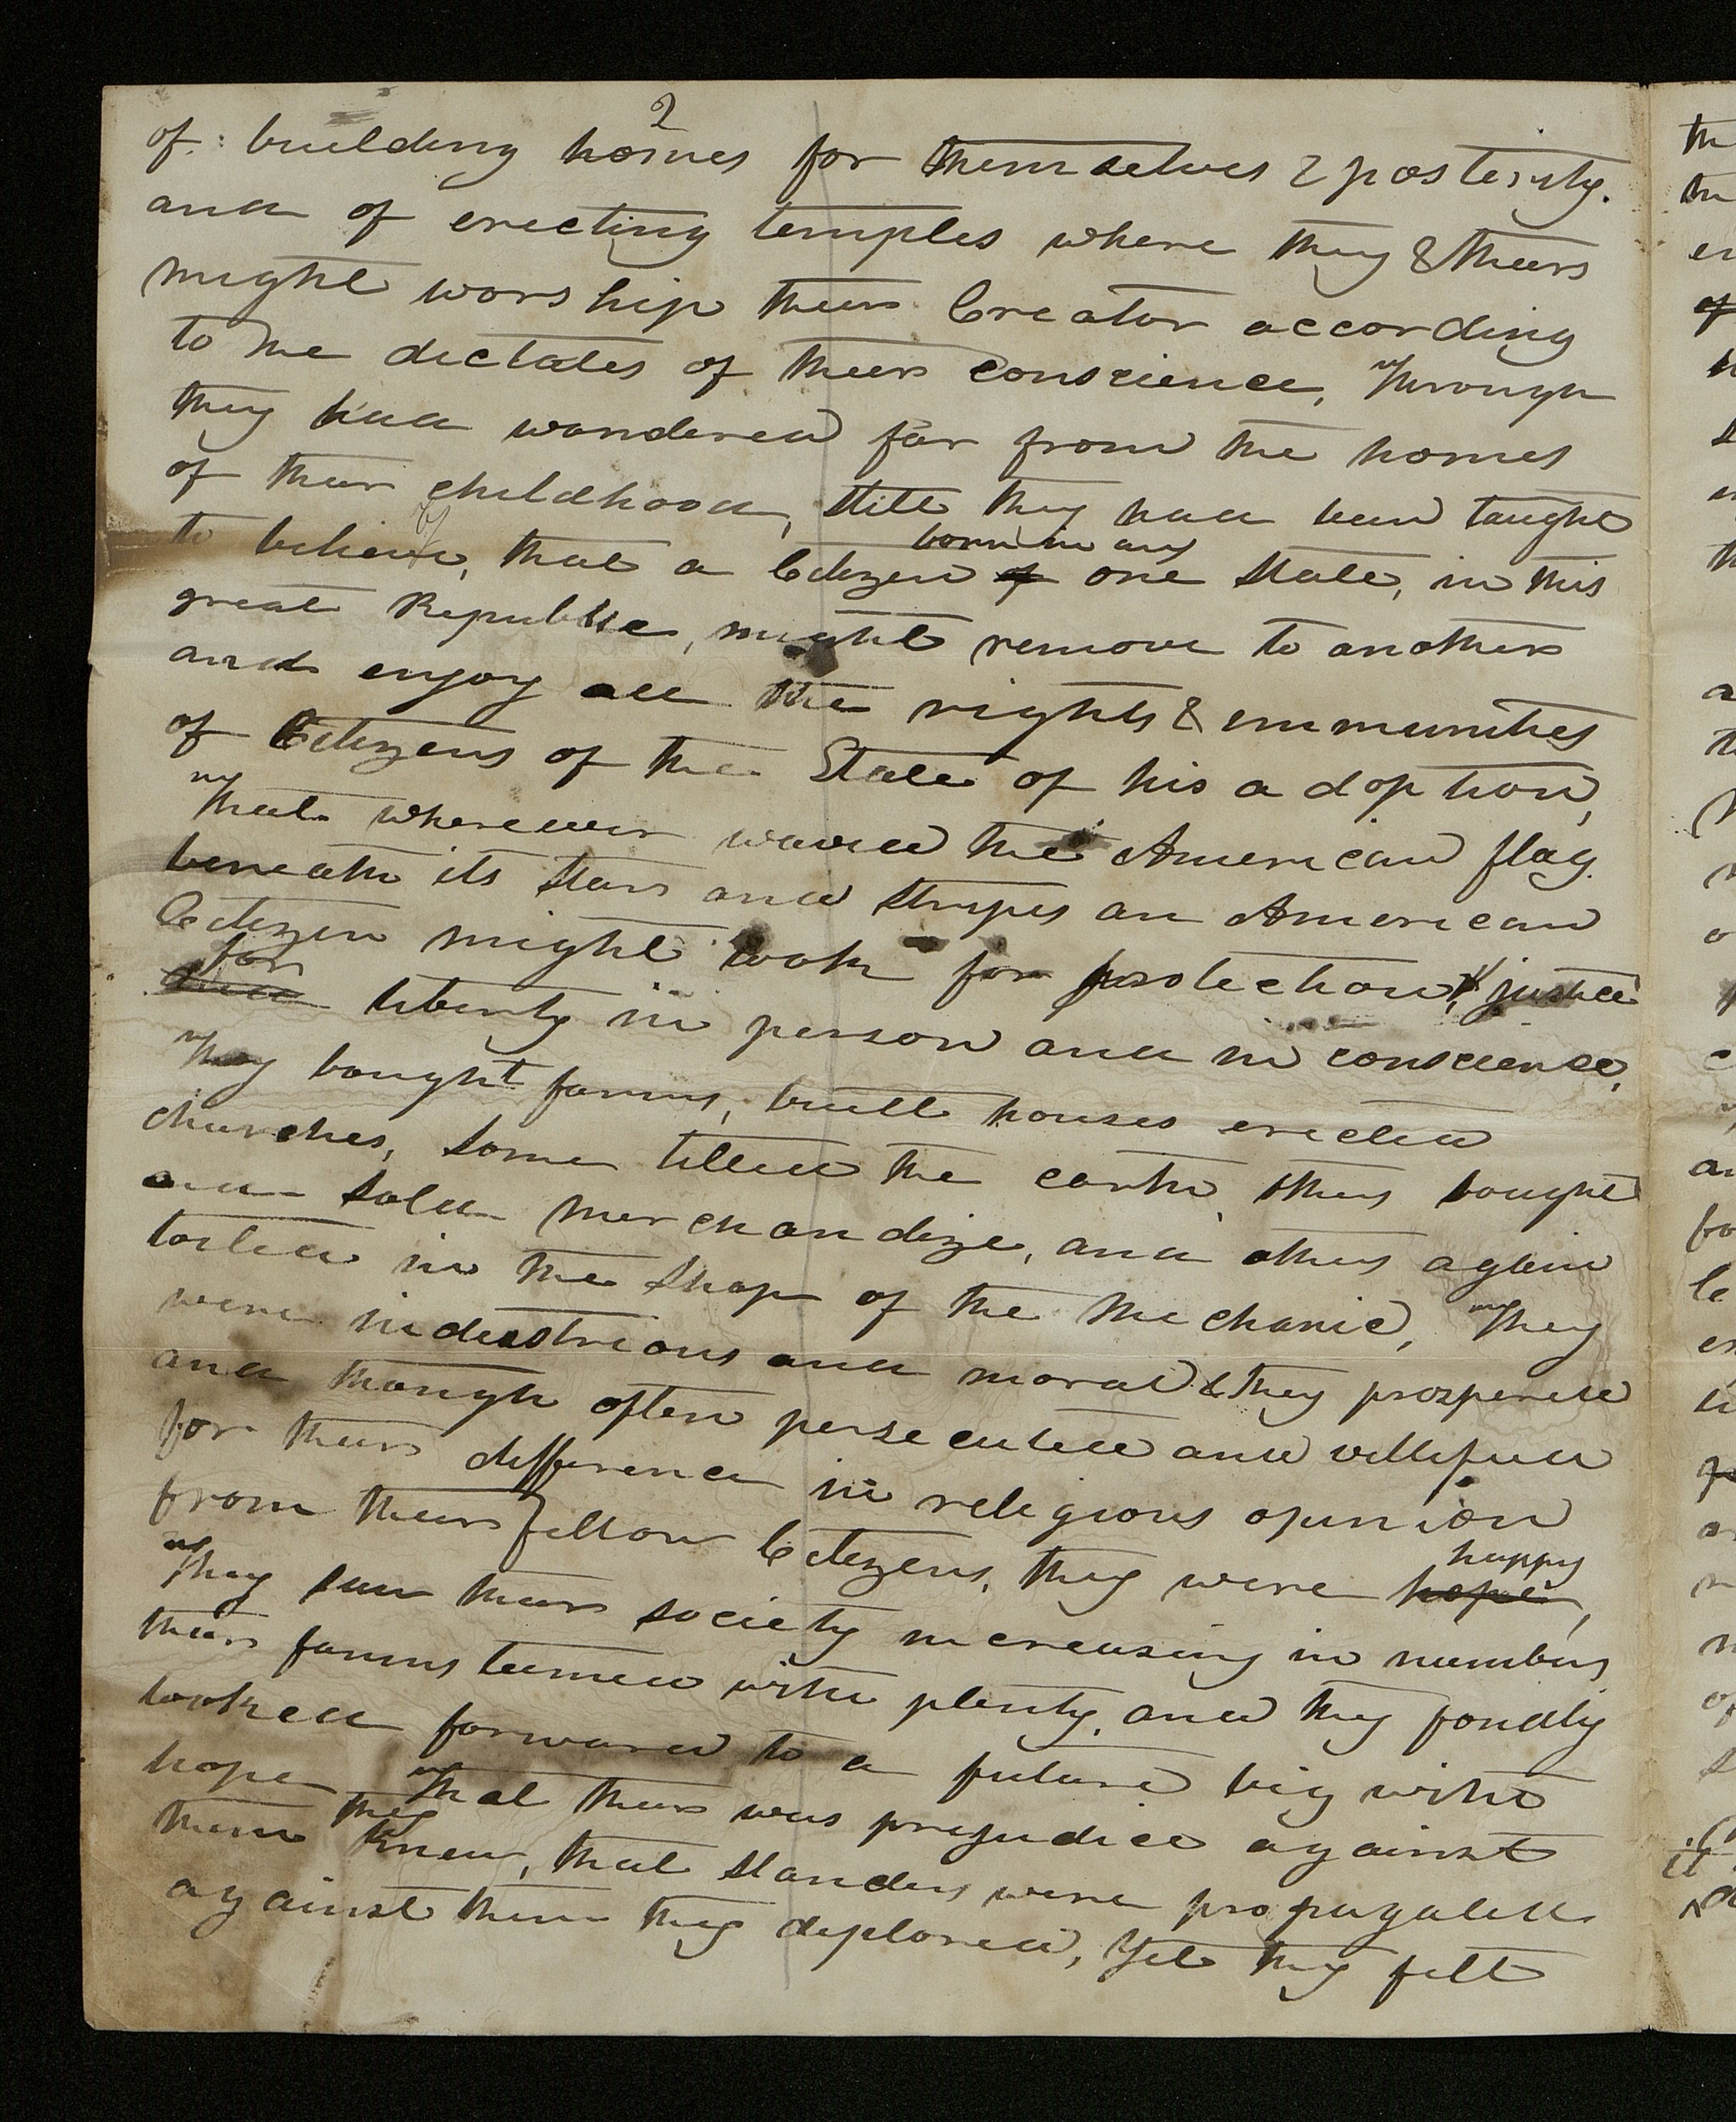 2
of building homes for themselves & posterity.
and of erecting temples where they & theirs
might worship their Creator according
to the dictates of their conscience, Through
they had wandered far from the homes
of their childhood, still they had been taught
to believe, that a Citizen of born in any one State, in this
great Republic, might remove to another
and enjoy all the rights & immunities
of Citizens of the State of his adoption,
That wherever waved the American flag
beneath its stars and stripes an American
Citizen might look for protection, & justice
for liberty in person and in conscience,
They bought farms, built houses erected
churches, some tilled the earth, others bought
and sold merchandize, and others again
toiled in the shop of the mechanic, They
were industrious and moral & they prospered
and though often persecuted and villified
for their difference in religious opinion
from their fellow Citizens, they were happy,
They saw their society increasing in numbers
their farms teemed with plenty, and they fondly
looked forward to a future big with
hope That there was prejudice against
them they knew, that slanders were propagated
against them they deplored, Yet they felt